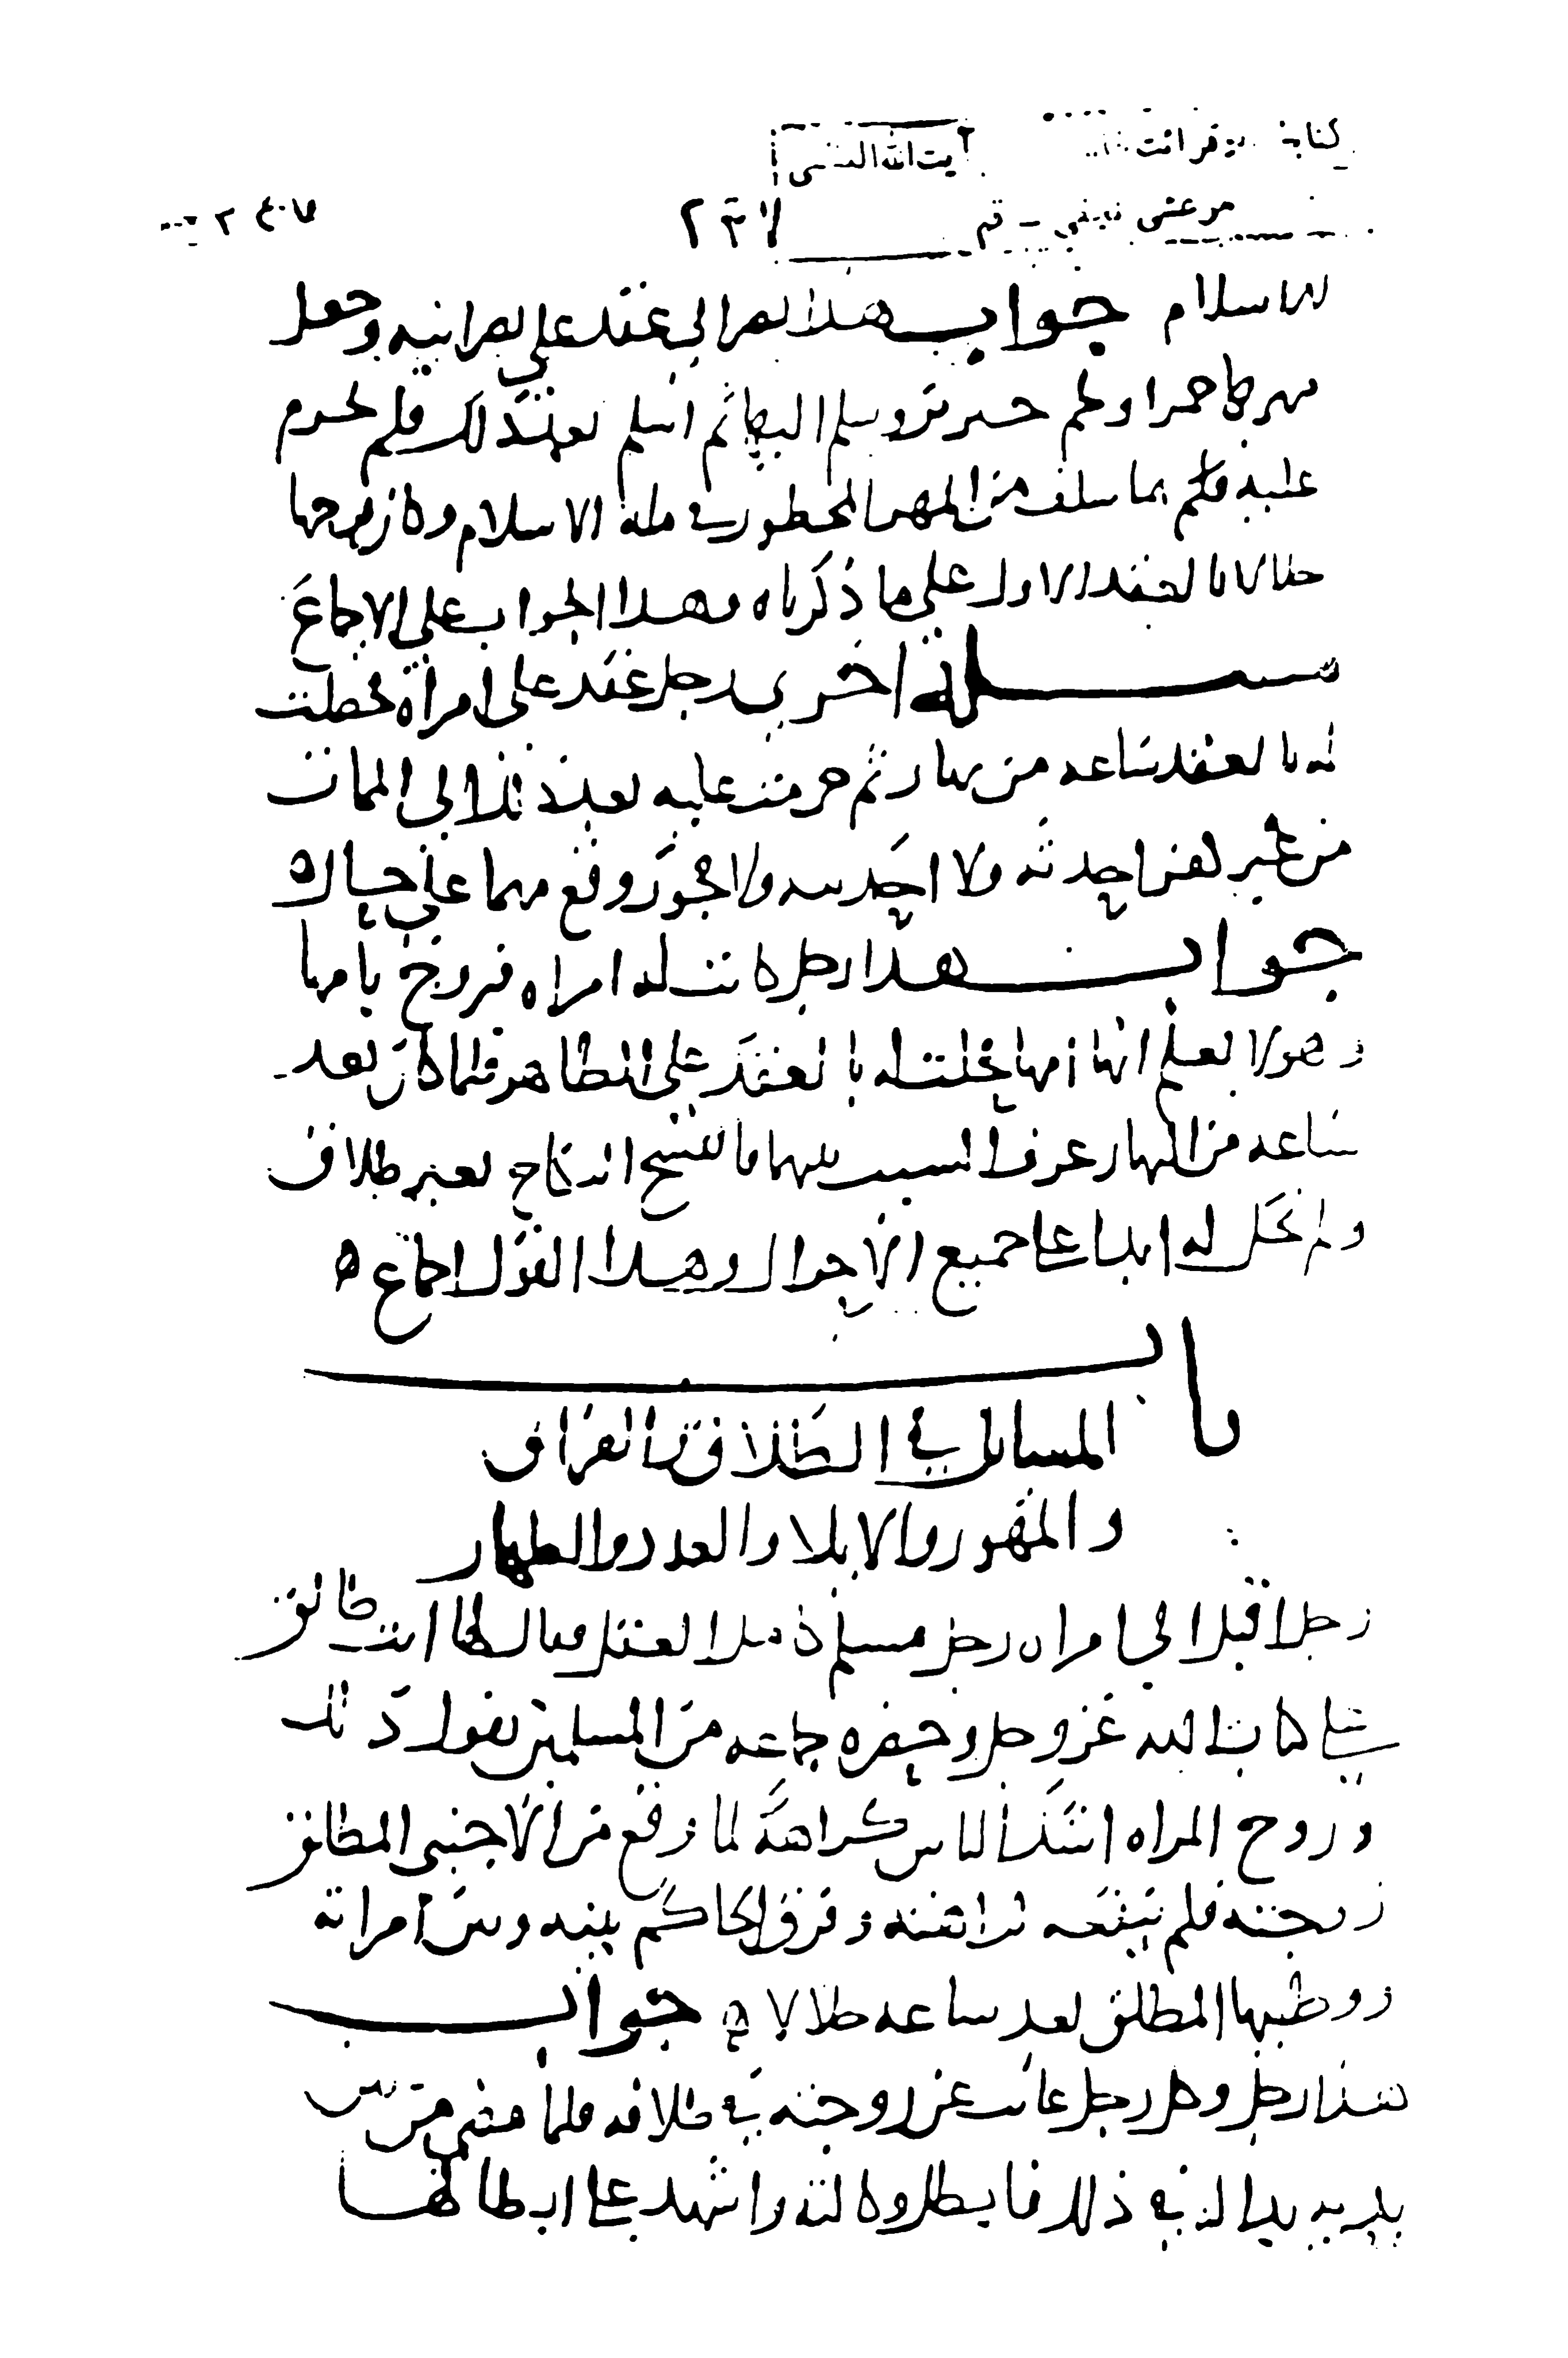 كتابخانه
آيت الله العظمى
مرعشى نجفى - قم
للاسلام جواب هذا نصراني عقد على نصرانية وجعل
مهرها خمرا ولحم خنزير وسلم اليها ثم اسلم بعد ذلك فلم يحرم
عليه فلم بما سلف من المهر المحظور في ملة الاسلام وكان فرجها
حلالا بالعقد الاول على ما ذكرناه وهذا الجواب على الاجماع
مسئلة اخرى رجل عقد على امراة فحلت
له بالعقد ساعة من نهار ثم حرمت عليه بعد ذلك الى الممات
من غير احدثه ولا احدثته ولا يجوز وقع منهما على حياله
جواب هذا رجل كانت له امراة فتزوج بامها
وهو لا يعلم انها امها فحلت له بالعقد على الظاهر فلما كان بعد
ساعة من النهار عرف النسب بينهما فانفسخ النكاح بغير طلاق
ولم تحل له ابدا على جميع الاحوال وهذا القول اجماع
باب
المسايل في الطلاق والفراق
والمهور والايلا والعدد والظهار
رجل اقبل الى امراة رجل مسلم كامل العقل فقال لها انت طالق
على كتاب الله عز وجل وحضره جماعة من المسلمين بقول ذلك
وزوج المراة اشد الناس كراهة لما وقع من الاجنبي المطلق
زوجته فلم ينفعه كراهته وفرق الحاكم بينه وبين امراته
ووطيها المطلق بعد ساعة حلالا جواب
هذا رجل وكل رجل غائب عن زوجته في طلاقه فلما مضى من بين
يديه بدا له في ذلك فابطل وكالته واشهد على ابطالها